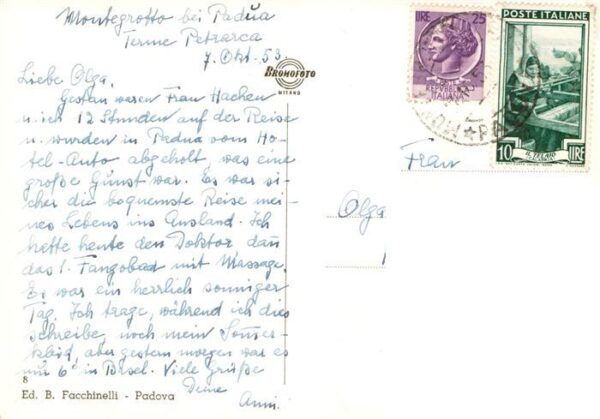 Montegrotto bei Padua
Terme Petrarca
7. Okt. 53.
BROMOFOTO
MILANO
Liebe Olga,
Gestern waren Frau Hachen
u. ich 12 Stunden auf der Reise
u. wurden in Padua vom Ho-
tel-Auto abgeholt, was eine
große Gunst war. Es war si-
cher die bequemste Reise mei-
nes Lebens ins Ausland. Ich
hatte heute den Doktor dann
das 1. Fangobad mit Massage.
Es war ein herrlich sonniger
Tag. Ich trage, während ich dies
schreibe, noch mein Sommer-
kleid, aber gestern morgen war es
nur 6° in Basel. Viele Grüße
Deine
Anni.
8
Ed. B. Facchinelli - Padova
LIRE 25
POSTE ITALIANE
10 LIRE
Frau
Olga